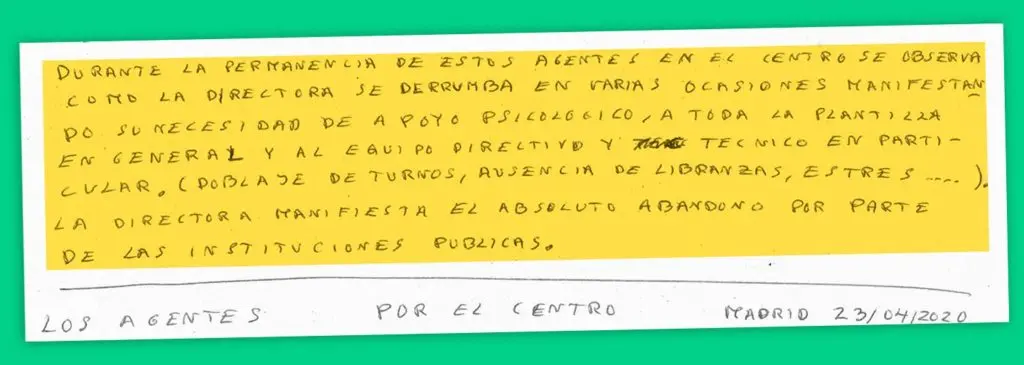 DURANTE LA PERMANENCIA DE ESTOS AGENTES EN EL CENTRO SE OBSERVA
COMO LA DIRECTORA SE DERRUMBA EN VARIAS OCASIONES MANIFESTAN
DO SU NECESIDAD DE APOYO PSICOLOGICO, A TODA LA PLANTILLA
EN GENERAL Y AL EQUIPO DIRECTIVO Y TECNICO EN PARTI-
CULAR. (DOBLAJE DE TURNOS, AUSENCIA DE LIBRANZAS, ESTRES ....).
LA DIRECTORA MANIFIESTA EL ABSOLUTO ABANDONO POR PARTE
DE LAS INSTITUCIONES PUBLICAS.
LOS AGENTES POR EL CENTRO MADRID 23/04/2020